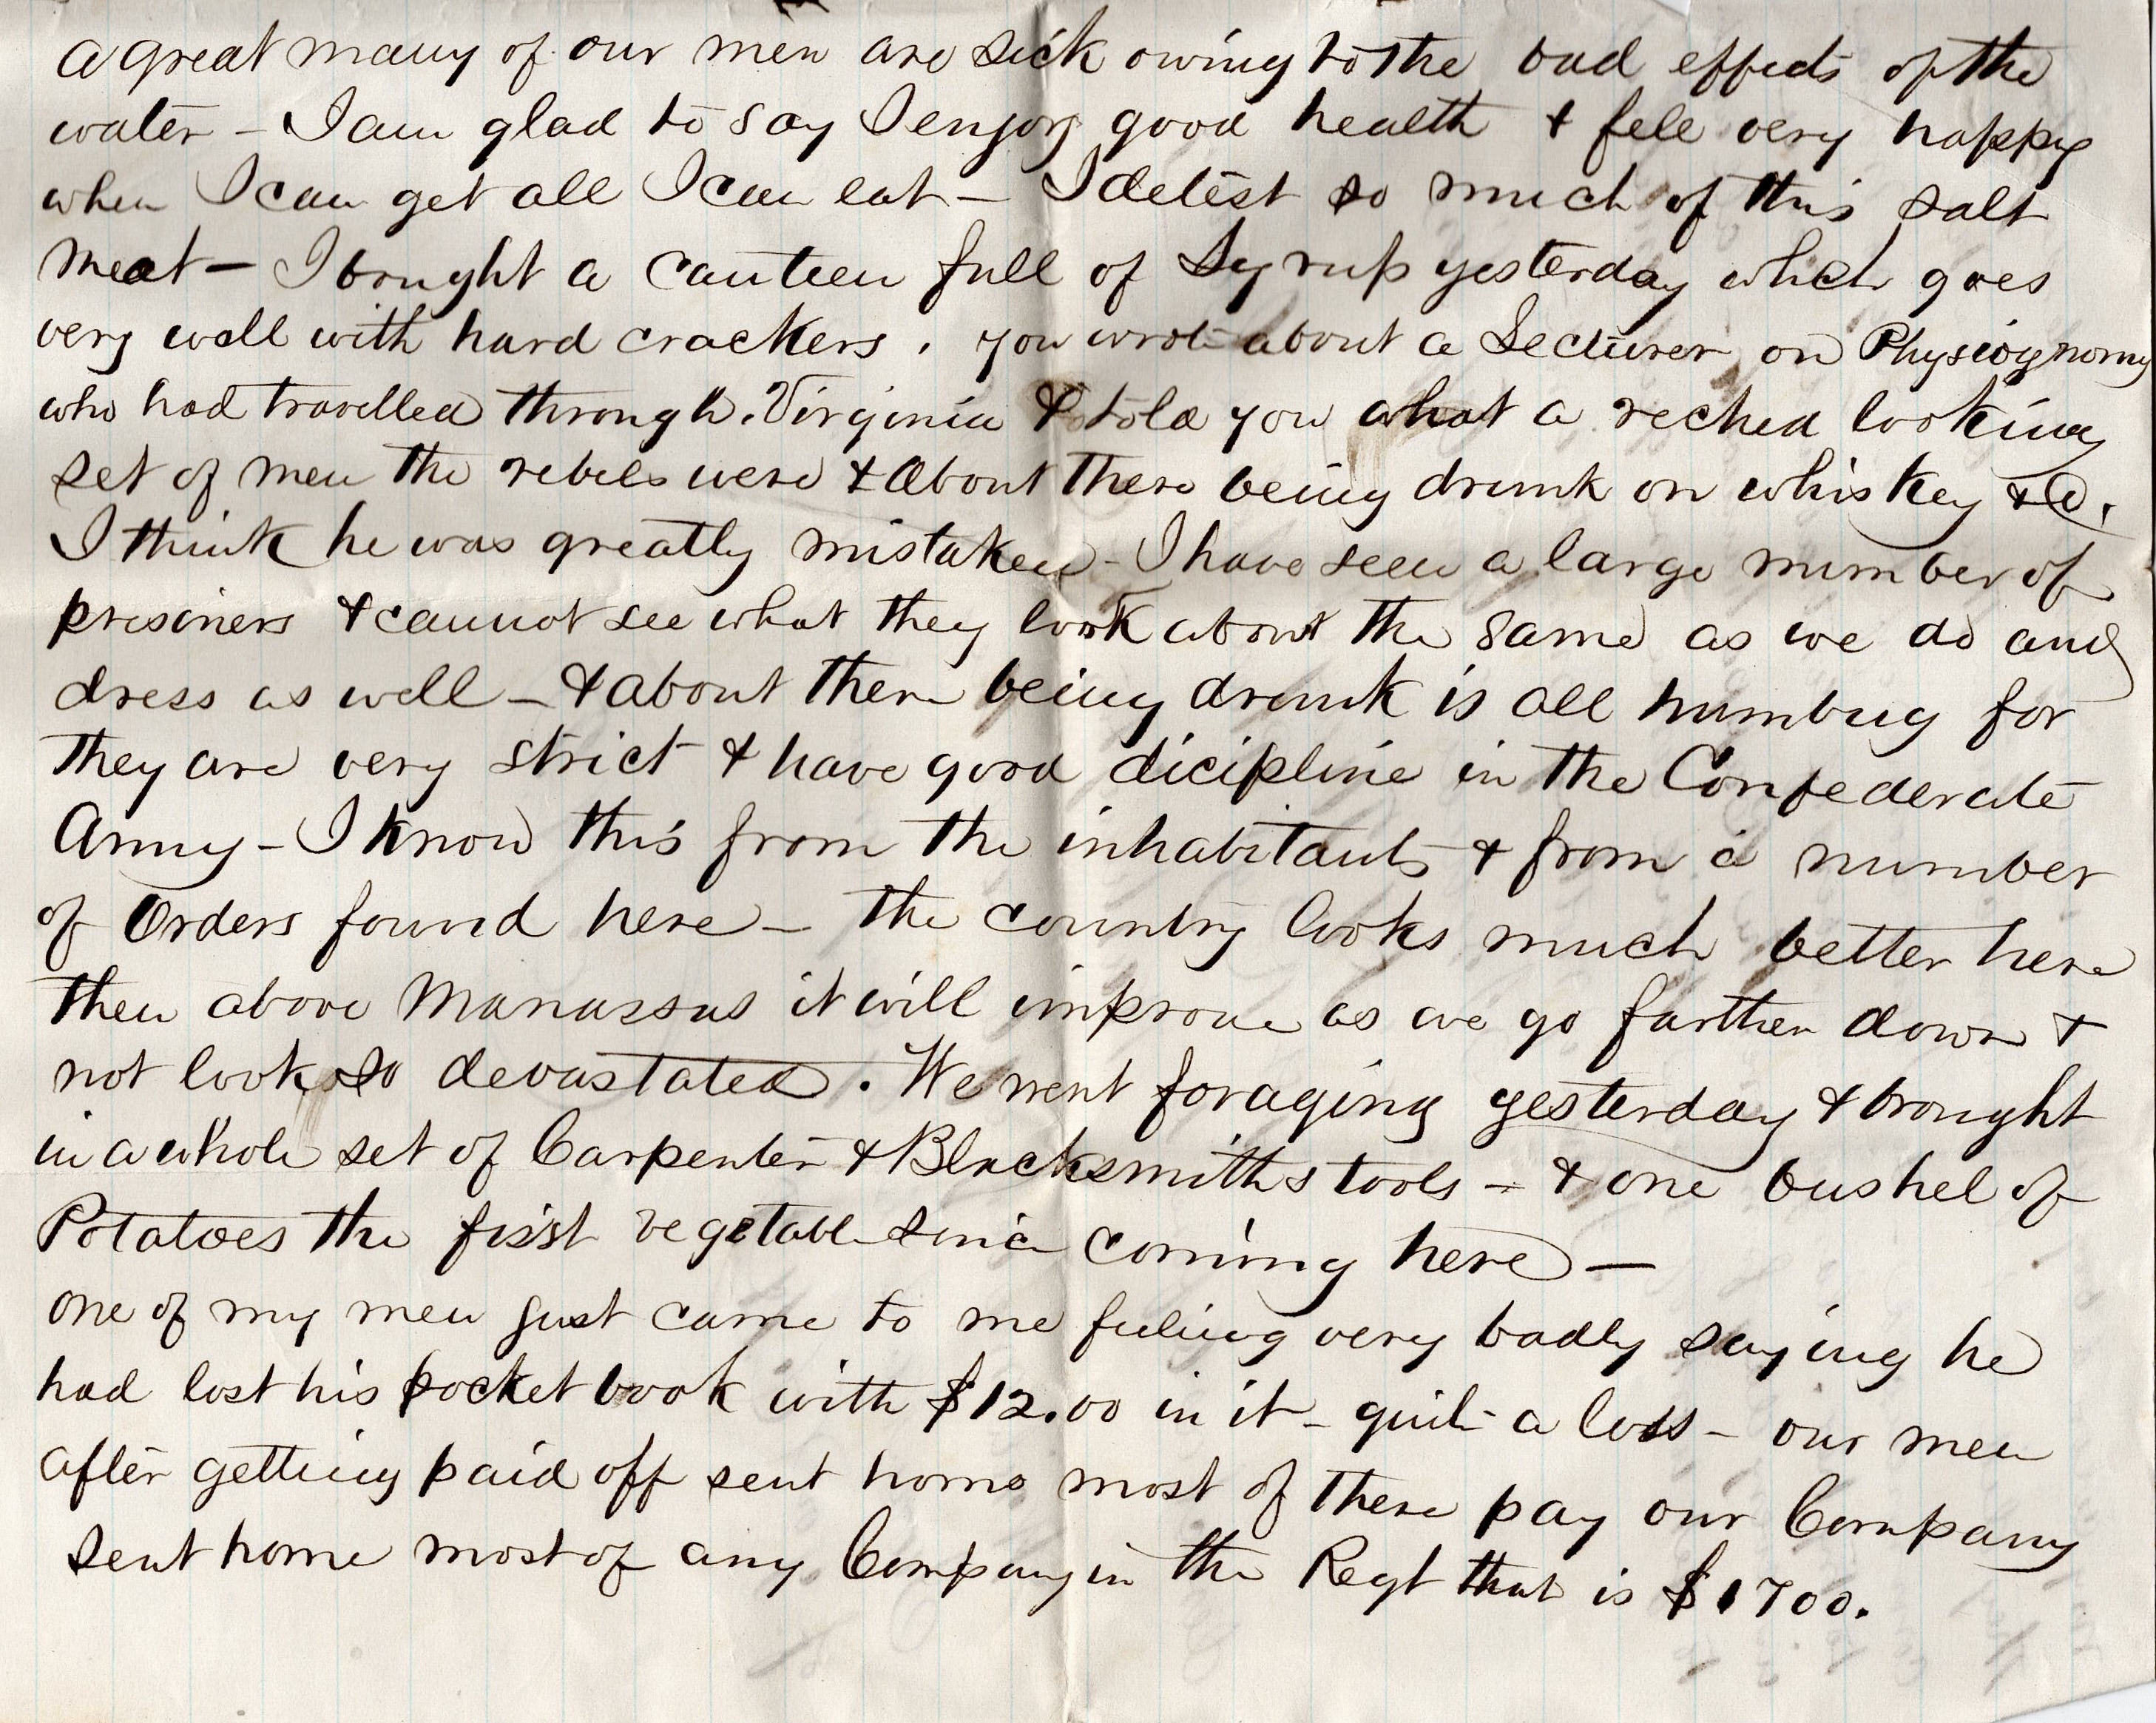 a great many of our men are sick owing to the bad effects of the
water – I am glad to say I enjoy good health & fele very happy
when I can get all I can eat – I detest so much of this salt
meat – I bought a canteen full of Syrup yesterday which goes
very well with hard crackers . you wrote about a Lecturer on Physiognomy
who had travelled through Virginia & told you what a reched looking
set of men the rebels were & about there being drunk on whiskey &c.
I think he was greatly mistaken – I have seen a large number of
prisoners & cannot see what they look about the same as we do and
dress as well – & about there being drunk is all humbug for
they are very strict & have good dicipline in the Confederate
Army – I know this from the inhabitants & from a number
of Orders found here – the country looks much better here
then above Manassas it will improve as we go farther down &
not look so devastated . We went foraging yesterday & brought
in a whole set of Carpenter & Blacksmiths tools – & one bushel of
Potatoes the first vegetable since coming here –
one of my men just came to me feeling very badly saying he
had lost his pocket book with $12.00 in it – quite a loss – our men
after getting paid off sent home most of there pay our Company
sent home most of any Company in the Regt that is $1700.